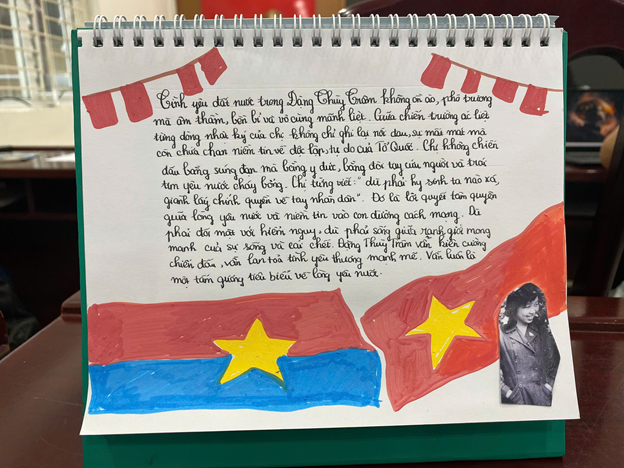 Tình yêu đất nước trong Đặng Thùy Trâm không ồn ào, phô trương
mà âm thầm, bền bỉ và vô cùng mãnh liệt. Giữa chiến trường ác liệt
từng dòng nhật ký của chị không chỉ ghi lại nỗi đau, sự mất mát mà
còn chứa chan niềm tin về độc lập, tự do của Tổ Quốc. Chị không chiến
đấu bằng súng đạn mà bằng y đức, bằng đôi tay cứu người và trái
tim yêu nước cháy bỏng. Chị từng viết: "dù phải hy sinh ta nào xá,
giành lấy chính quyền về tay nhân dân". Đó là lời quyết tâm quyện
giữa lòng yêu nước và niềm tin vào con đường cách mạng. Dù
phải đối mặt với hiểm nguy, dù phải sống giữa ranh giới mong
manh của sự sống và cái chết. Đặng Thùy Trâm vẫn kiên cường
chiến đấu, vẫn lan toả tình yêu thương mạnh mẽ. Vẫn luôn là
một tấm gương tiêu biểu về lòng yêu nước.